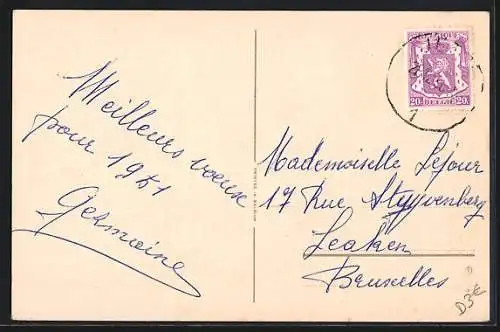 Meilleurs voeux
pour 1951
Germaine
Mademoiselle Lejour
17 Rue Stuyvenberg
Leaken
Bruxelles
20c 20c
D3€